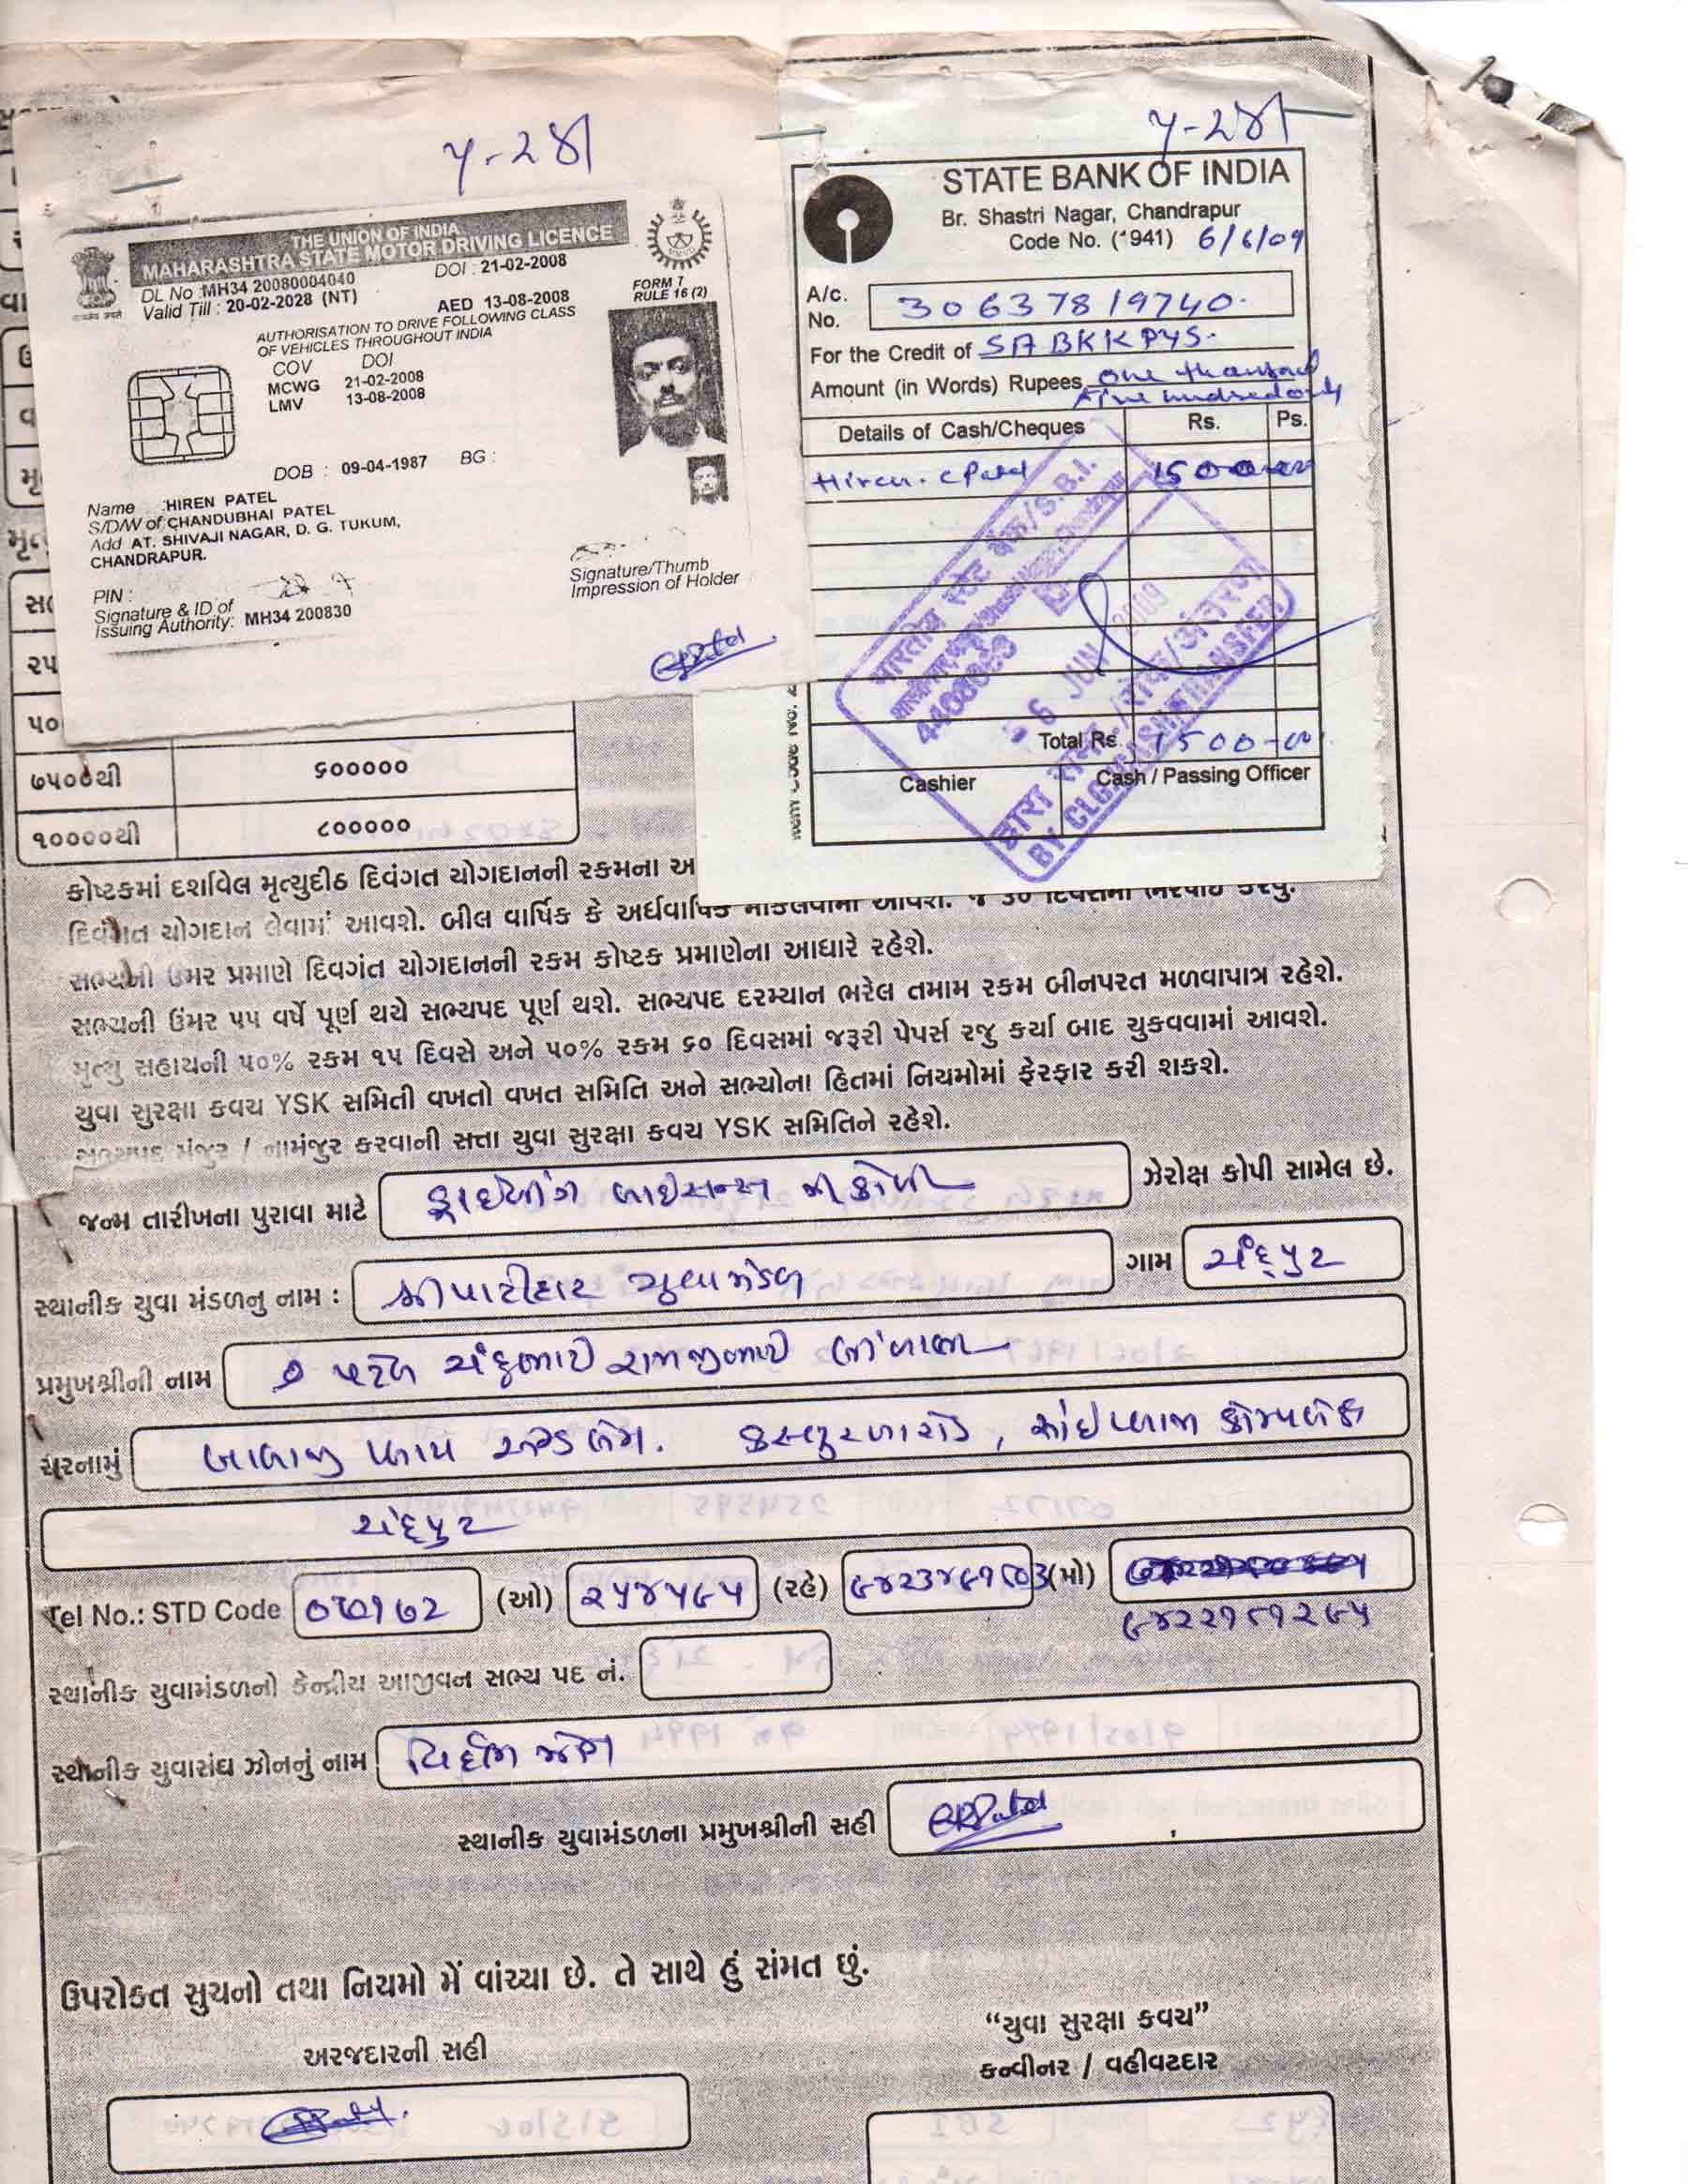 ૫-૨૪૧
THE UNION OF INDIA
MAHARASHTRA STATE MOTOR DRIVING LICENCE
DL No :MH34 20080004040 DOI : 21-02-2008
Valid Till : 20-02-2028 (NT) AED 13-08-2008
FORM 7
RULE 16 (2)
AUTHORISATION TO DRIVE FOLLOWING CLASS
OF VEHICLES THROUGHOUT INDIA
COV DOI
MCWG 21-02-2008
LMV 13-08-2008
DOB : 09-04-1987 BG :
Name :HIREN PATEL
S/D/W of :CHANDUBHAI PATEL
Add AT. SHIVAJI NAGAR, D. G. TUKUM,
CHANDRAPUR.
PIN :
Signature & ID of
Issuing Authority: MH34 200830
Signature/Thumb
Impression of Holder
૫-૨૪૧
STATE BANK OF INDIA
Br. Shastri Nagar, Chandrapur
Code No. (*941) 6/6/09
A/c. No. 30637819740.
For the Credit of SABKKPYS.
Amount (in Words) Rupees one thousand
five hundred only
Details of Cash/Cheques Rs. Ps.
Hiren. C Patel 1500
6 JUN 2009
BY CLG./CASH/TRANSFER
Total Rs 1500-00
Cashier Cash / Passing Officer
૭૫૦૦થી ૬૦૦૦૦૦
૧૦૦૦૦થી ૮૦૦૦૦૦
કોષ્ટકમાં દર્શાવેલ મૃત્યુદીઠ દિવંગત યોગદાનની રકમના અ
દિવંગત યોગદાન લેવામાં આવશે. બીલ વાર્ષિક કે અર્ધવાર્ષિક મોકલવામાં આવશે. જે ૩૦ દિવસમાં ભરપાઈ કરવુ.
સભ્યની ઉંમર પ્રમાણે દિવગંત યોગદાનની રકમ કોષ્ટક પ્રમાણેના આધારે રહેશે.
સભ્યની ઉંમર ૫૫ વર્ષે પૂર્ણ થયે સભ્યપદ પૂર્ણ થશે. સભ્યપદ દરમ્યાન ભરેલ તમામ રકમ બીનપરત મળવાપાત્ર રહેશે.
મૃત્યુ સહાયની ૫૦% રકમ ૧૫ દિવસે અને ૫૦% રકમ ૬૦ દિવસમાં જરૂરી પેપર્સ રજુ કર્યા બાદ ચુકવવામાં આવશે.
યુવા સુરક્ષા કવચ YSK સમિતી વખતો વખત સમિતિ અને સભ્યોના હિતમાં નિયમોમાં ફેરફાર કરી શકશે.
સભ્યપદ મંજુર / નામંજુર કરવાની સત્તા યુવા સુરક્ષા કવચ YSK સમિતિને રહેશે.
જન્મ તારીખના પુરાવા માટે ડ્રાઈવીંગ લાઈસન્સ ની કોપી ઝેરોક્ષ કોપી સામેલ છે.
સ્થાનીક યુવા મંડળનુ નામ : શ્રી પાટીદાર યુવામંડળ ગામ ચંદ્રપુર
પ્રમુખશ્રીની નામ પટેલ ચંદુભાઈ રામજીભાઈ
સરનામું બાલાજી કસ્તુરબા રોડ, સાંઈ કોમ્પલેક્ષ
ચંદ્રપુર
Tel No.: STD Code ૦૭૧૭૨ (ઓ) ૨૫૪૫૯૫ (રહે) ૯૪૨૩૪૯૧૮૦૩ (મો)
૯૪૨૨૧૯૧૨૯૫
સ્થાનીક યુવામંડળનો કેન્દ્રીય આજીવન સભ્ય પદ નં.
સ્થાનીક યુવાસંઘ ઝોનનું નામ વિદર્ભ ઝોન
સ્થાનીક યુવામંડળના પ્રમુખશ્રીની સહી CRPatel
ઉપરોક્ત સુચનો તથા નિયમો મેં વાંચ્યા છે. તે સાથે હું સંમત છું.
અરજદારની સહી
“યુવા સુરક્ષા કવચ”
કન્વીનર / વહીવટદાર